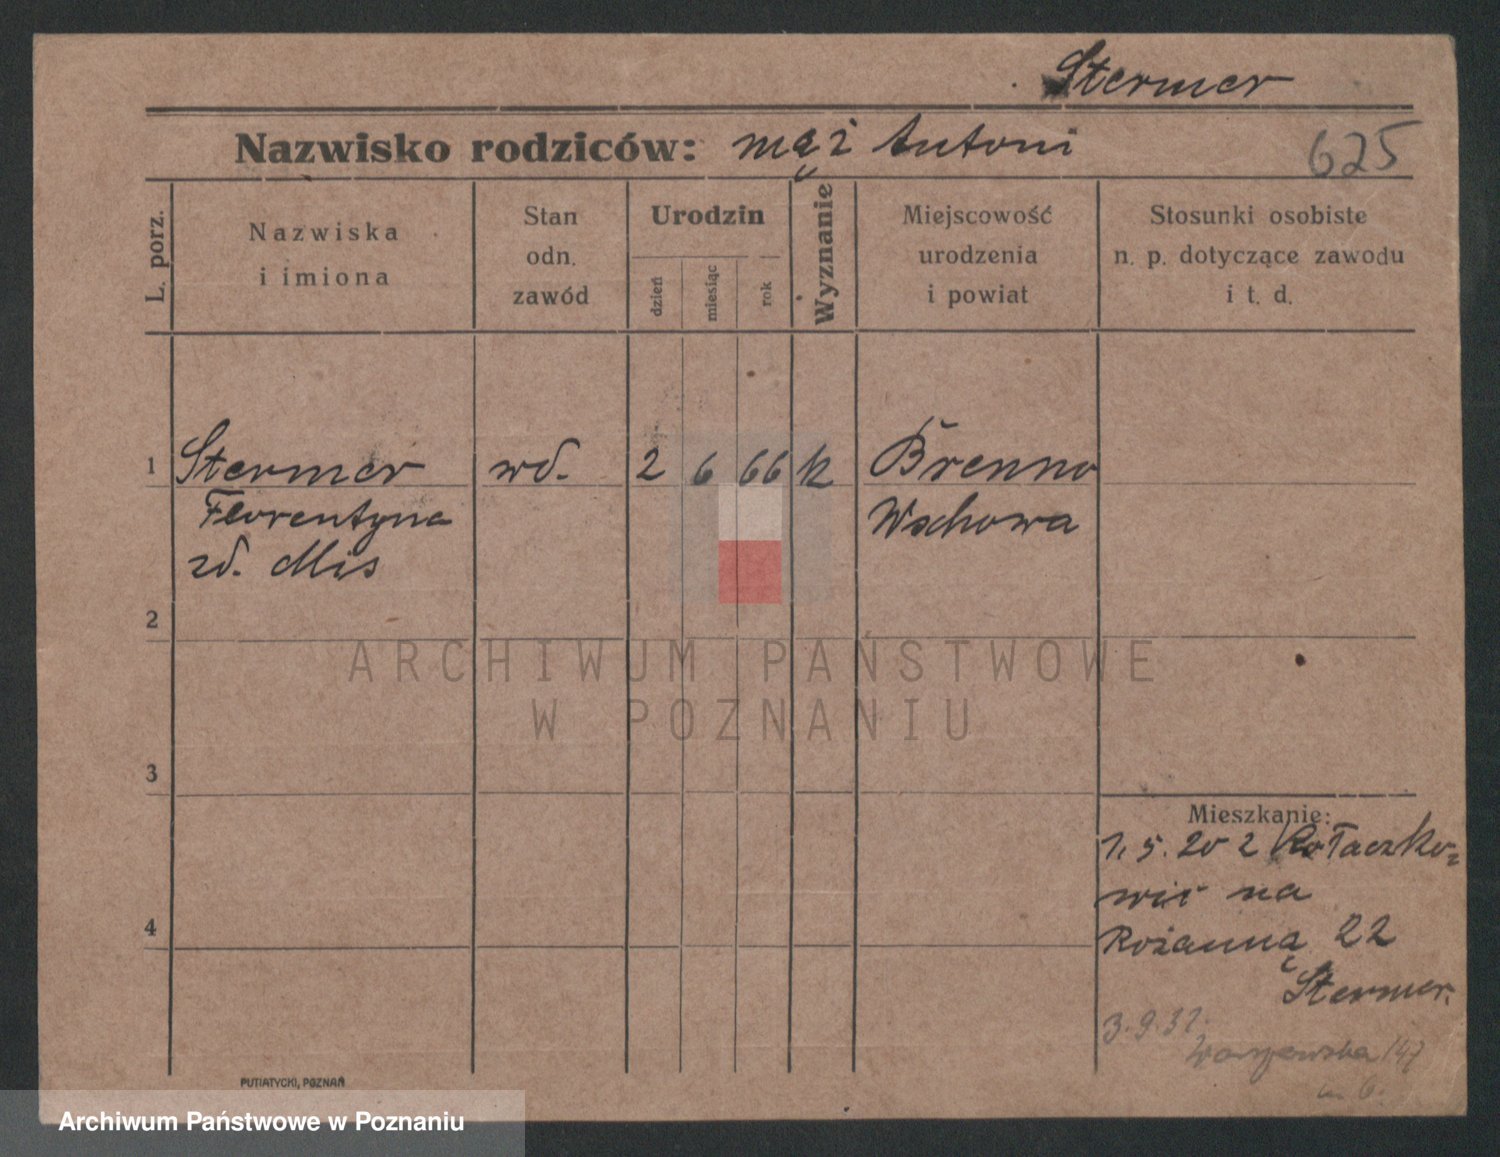 Stermer
Nazwisko rodziców: mąż Antoni
625
L. porz.
Nazwiska
i imiona
Stan
odn.
zawód
Urodzin
dzień
miesiąc
rok
Wyznanie
Miejscowość
urodzenia
i powiat
Stosunki osobiste
n. p. dotyczące zawodu
i t. d.
1 Stermer wd. 2 6 66 k Brenno
Florentyna Wschowa
zd. Mis
2
ARCHIWUM PAŃSTWOWE
W POZNANIU
3
Mieszkanie:
1.5.20 z Kołaczko-
wic na
4
Różanną 22
Stermer.
3.9.31.
Warszawska 147
m 6.
PUTIATYCKI, POZNAŃ
Archiwum Państwowe w Poznaniu